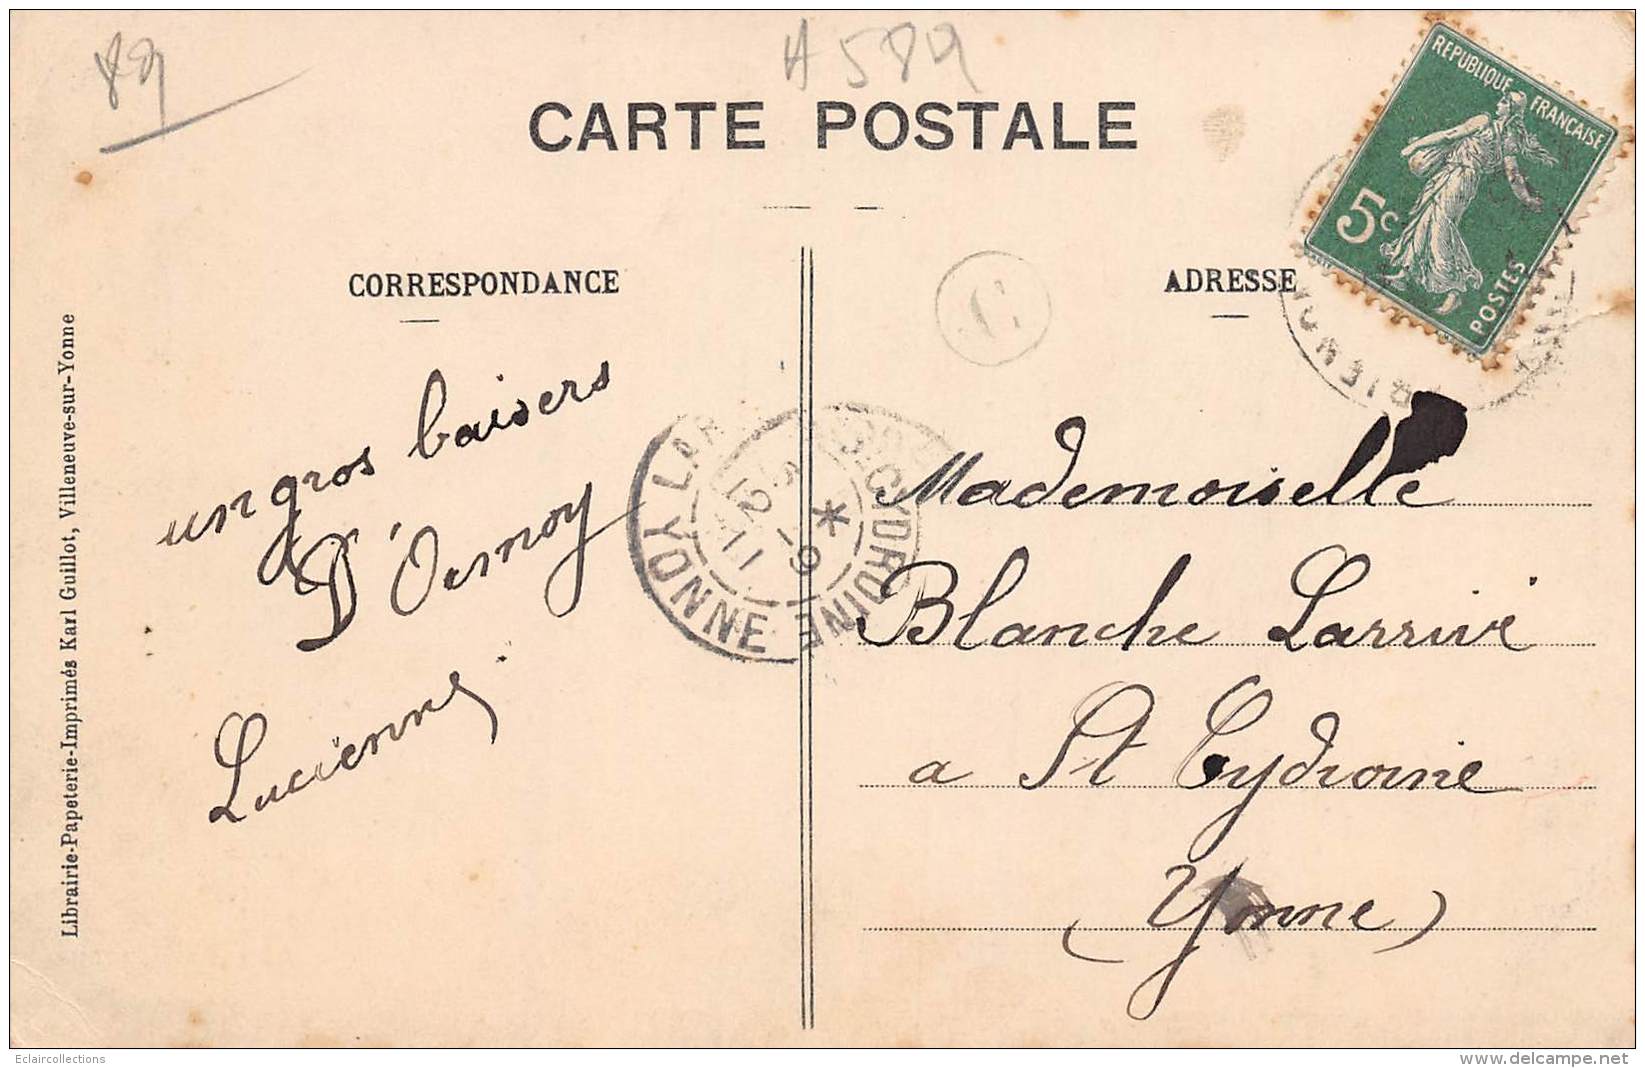 89
A 589
CARTE POSTALE
REPUBLIQUE FRANÇAISE
5c
POSTES
CORRESPONDANCE
ADRESSE
C
un gros baisers
D'Ormoy
Lucienne
YONNE
CYDROINE
Mademoiselle
Blanche Larrivé
a St Cydroine
(Yonne)
Librairie-Papeterie-Imprimés Karl Guillot, Villeneuve-sur-Yonne
Eclaircollections
delcampe.net